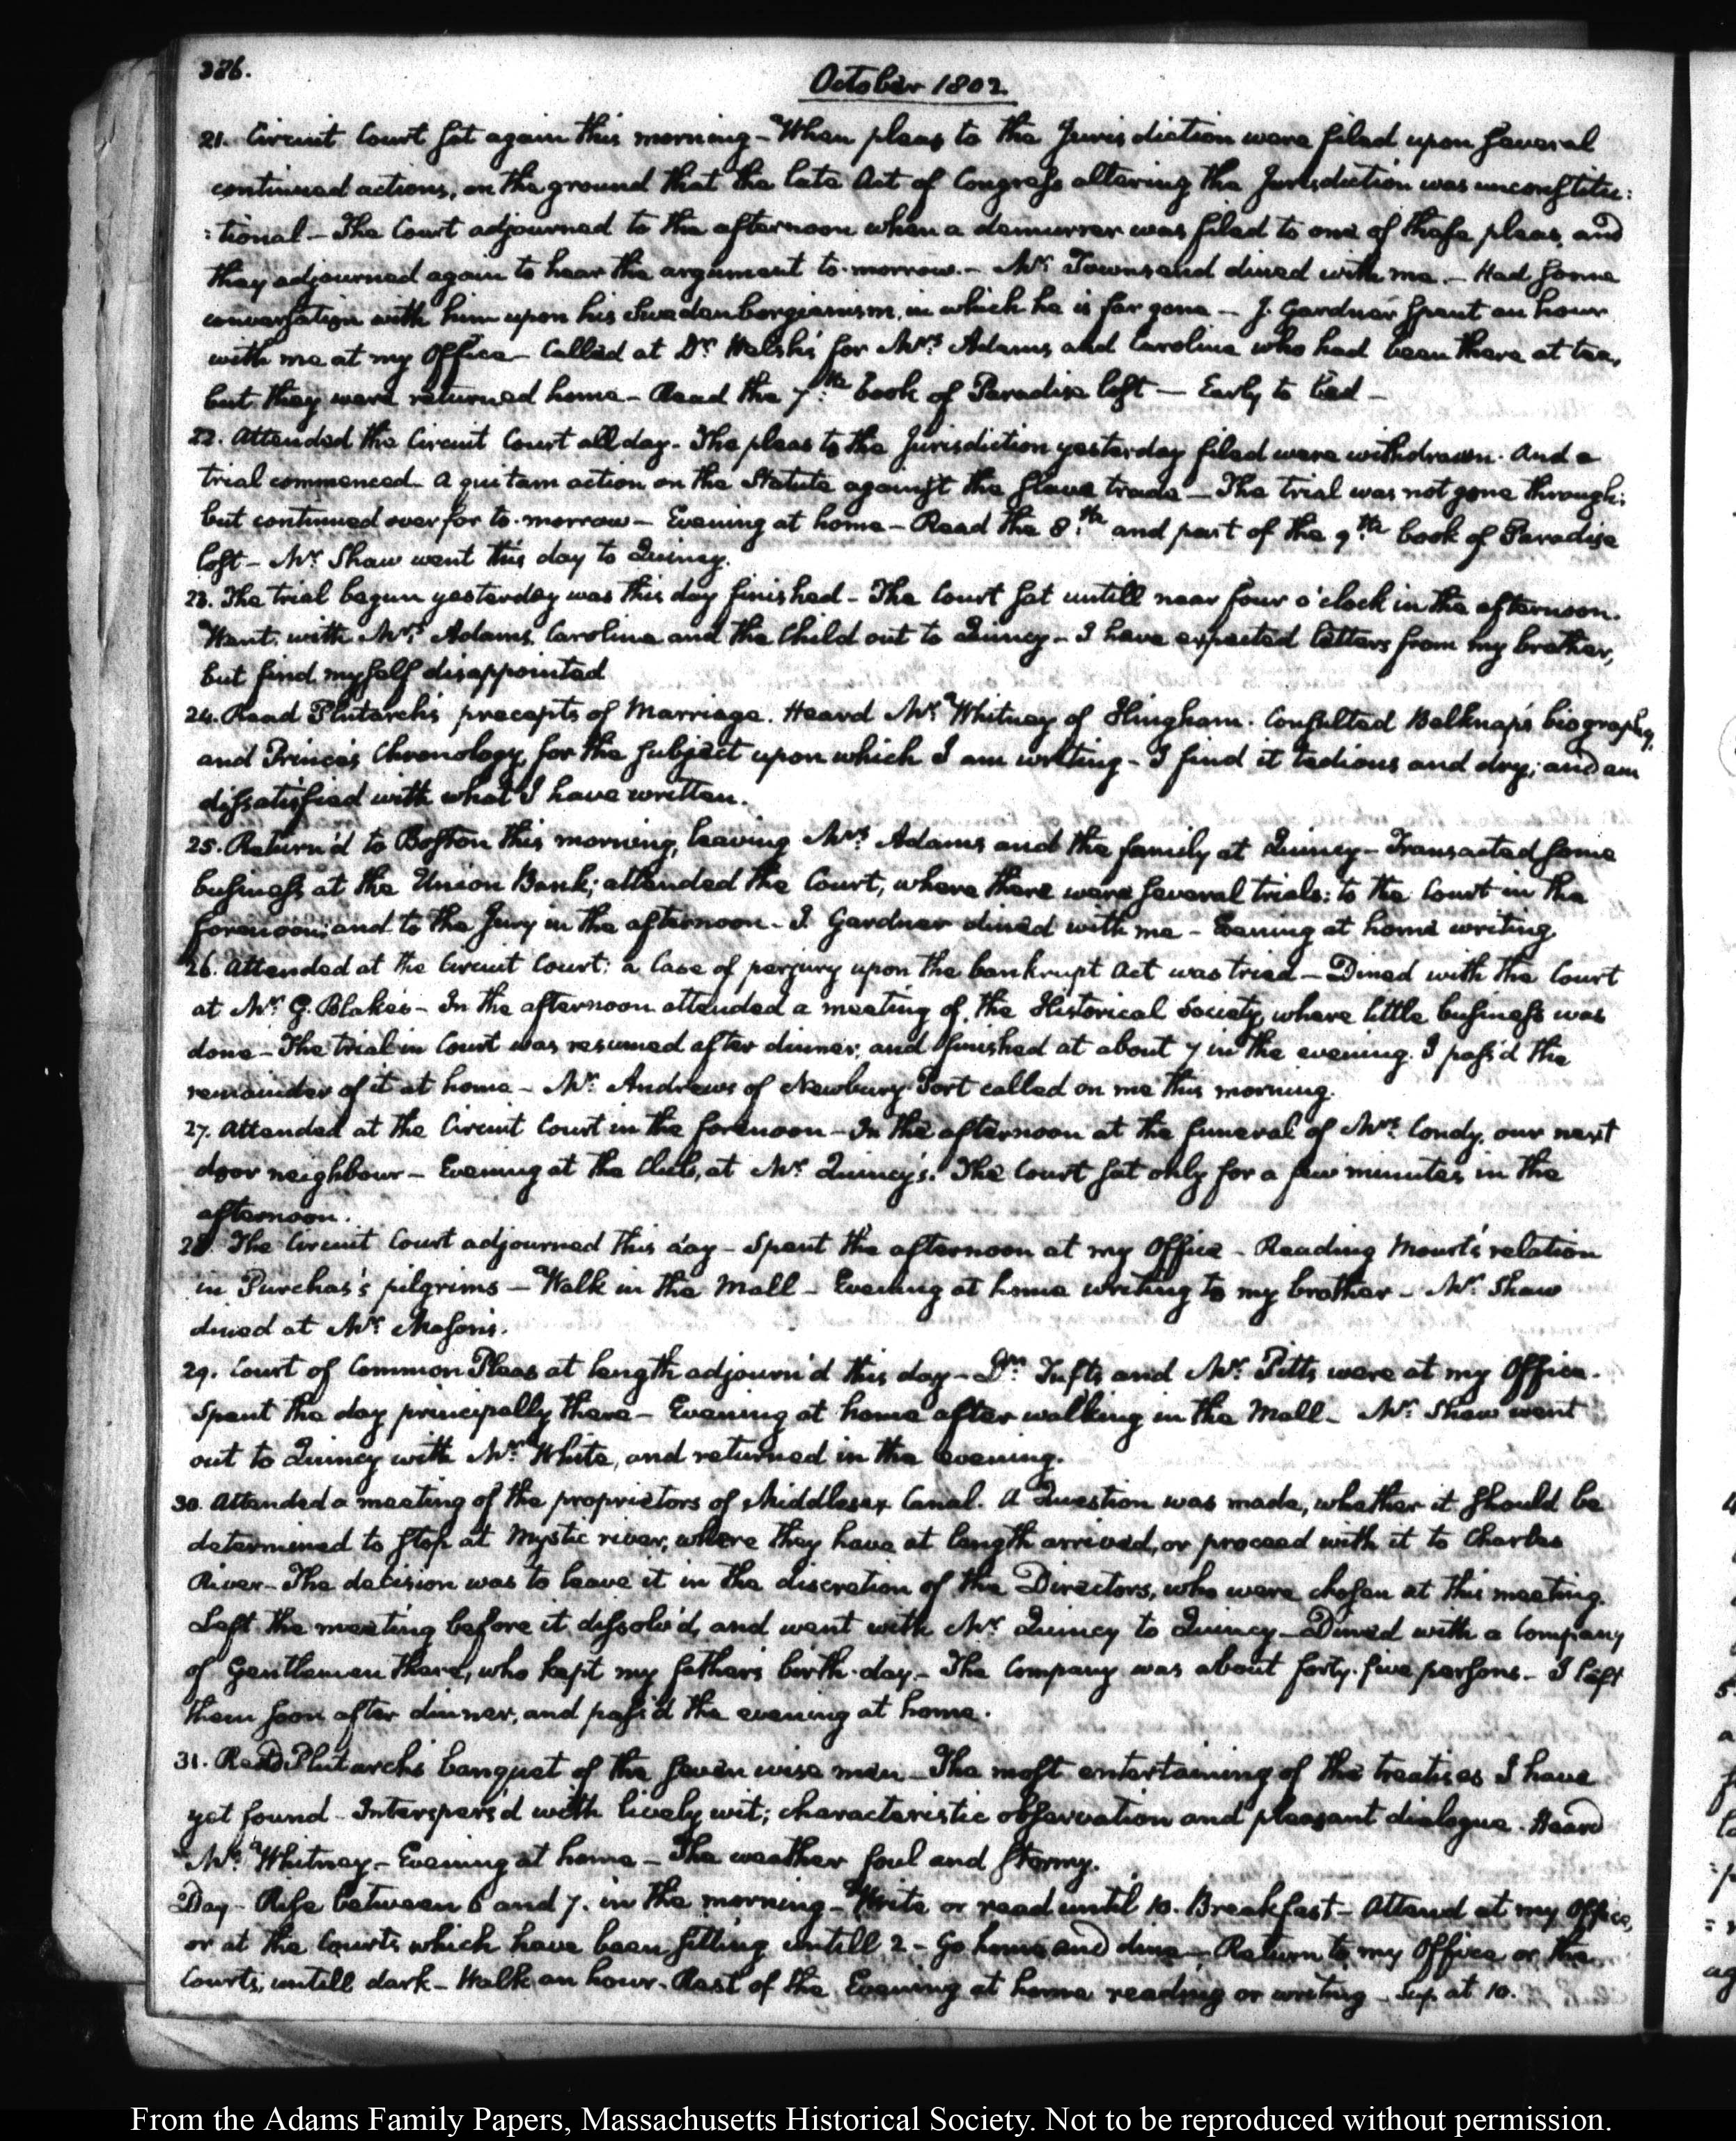 386.
October 1802.
21. Circuit Court sat again this morning - When pleas to the Jurisdiction were filed upon several
continued actions, on the ground that the late Act of Congress altering the Jurisdiction was unconstitu:
:tional - The Court adjourned to the afternoon when a demurrer was filed to one of these pleas, and
they adjourned again to hear the argument to-morrow. - Mr. Townsend dined with me. - Had some
conversation with him upon his Swedenborgianism, in which he is far gone - J. Gardner spent an hour
with me at my Office - Called at Dr. Welsh's for Mrs. Adams and Caroline who had been there at tea,
but they were returned home - Read the 7.th book of Paradise lost - Early to bed -
22. Attended the Circuit Court all day - The pleas to the Jurisdiction yesterday filed were withdrawn. And a
trial commenced - A qui tam action on the Statute against the slave trade - The trial was not gone through;
but continued over for to-morrow - Evening at home - Read the 8.th and part of the 9.th book of Paradise
lost - Mr. Shaw went this day to Quincy.
23. The trial begun yesterday was this day finished - The Court sat untill near four o'clock in the afternoon.
Went with Mrs. Adams, Caroline and the Child out to Quincy - I have expected letters from my brother,
but find myself disappointed
24. Read Plutarch's precepts of Marriage. Heard Mr. Whitney of Hingham. Consulted Belknap's biography,
and Prince's Chronology, for the subject upon which I am writing - I find it tedious and dry; and am
dissatisfied with what I have written.
25. Return'd to Boston this morning, leaving Mrs. Adams and the family at Quincy - Transacted some
business at the Union Bank; attended the Court, where there were several trials: to the Court in the
forenoon; and to the Jury in the afternoon - J. Gardner dined with me - Evening at home writing
26. Attended at the Circuit Court: a Case of perjury upon the bankrupt Act was tried - Dined with the Court
at Mr. G. Blake's - In the afternoon attended a meeting of the Historical Society, where little business was
done - The trial in Court was resumed after dinner, and finished at about 7 in the evening. I pass'd the
remainder of it at home - Mr. Andrews of Newbury-Port called on me this morning.
27. Attended at the Circuit Court in the forenoon - In the afternoon at the funeral of Mrs. Condy, our next
door neighbour - Evening at the Club, at Mr. Quincy's. The Court sat only for a few minutes in the
afternoon.
28. The Circuit Court adjourned this day - Spent the afternoon at my Office - Reading Mourt's relation
in Purchas's pilgrims - Walk in the Mall - Evening at home writing to my brother - Mr. Shaw
dined at Mr. Mason's.
29. Court of Common Pleas at length adjourn'd this day - Dn. Tufts and Mr. Pitts were at my Office.
Spent the day principally there - Evening at home after walking in the Mall - Mr. Shaw went
out to Quincy with Mr. White, and returned in the evening.
30. Attended a meeting of the proprietors of Middlesex Canal. A Question was made, whether it should be
determined to stop at Mystic river, where they have at length arrived, or proceed with it to Charles
River - The decision was to leave it in the discretion of the Directors, who were chosen at this meeting.
Left the meeting before it dissolv'd, and went with Mr. Quincy to Quincy - Dined with a Company
of Gentlemen there, who kept my father's birth-day - The Company was about forty-five persons - I left
them soon after dinner, and pass'd the evening at home.
31. Read Plutarch's banquet of the seven wise men - The most entertaining of the treatises I have
yet found - Interspers'd with lively wit; characteristic observation and pleasant dialogue. Heard
Mr. Whitney - Evening at home - The weather foul and stormy.
Day - Rise between 6 and 7. in the morning - Write or read until 10. Breakfast - Attend at my Office,
or at the Courts which have been sitting untill 2 - Go home and dine - Return to my Office or the
Courts, untill dark - Walk an hour - Rest of the Evening at home reading or writing - Sup at 10.
From the Adams Family Papers, Massachusetts Historical Society. Not to be reproduced without permission.